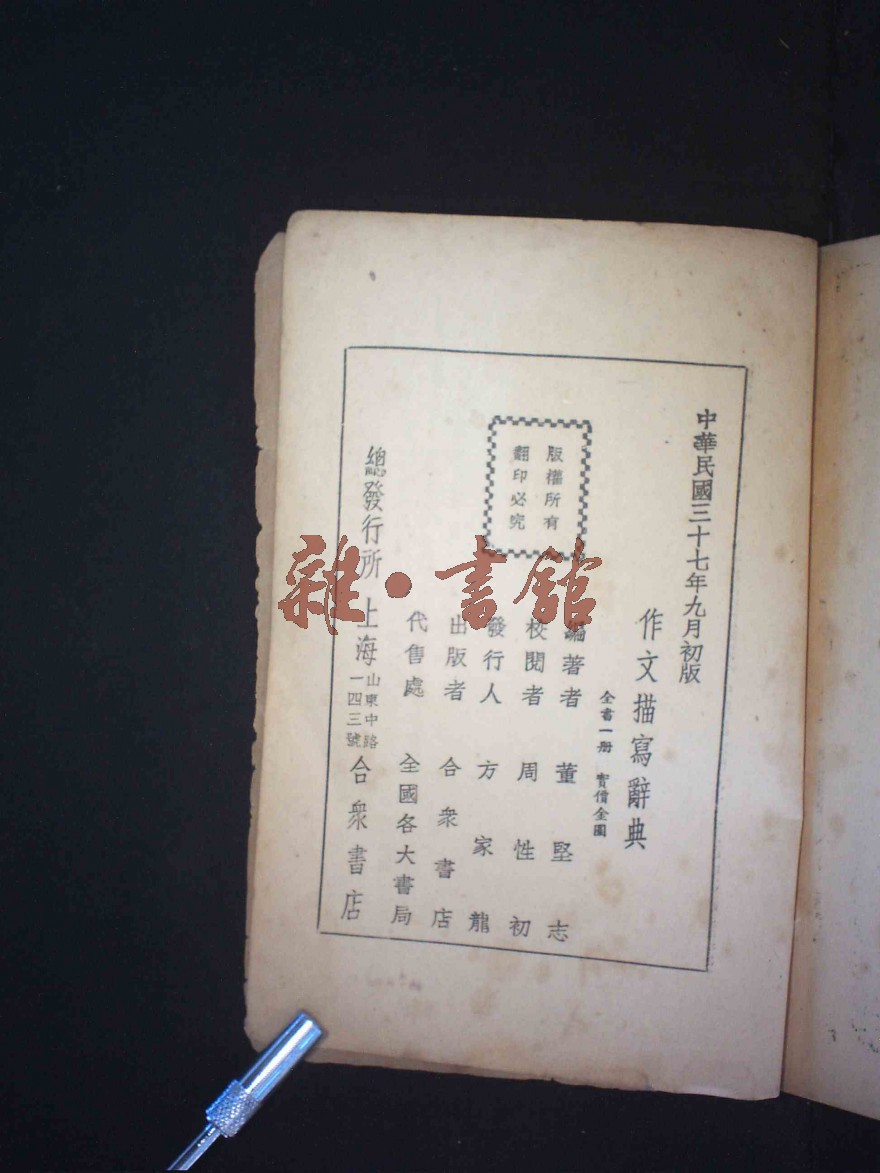 中華民國三十七年九月初版
作文描寫辭典
全書一册 實價金圓
版權所有
翻印必究
編著者 董堅志
校閱者 周性初
發行人 方家龍
出版者 合衆書店
代售處 全國各大書局
總發行所 上海山東中路一四三號 合衆書店
雜·書館